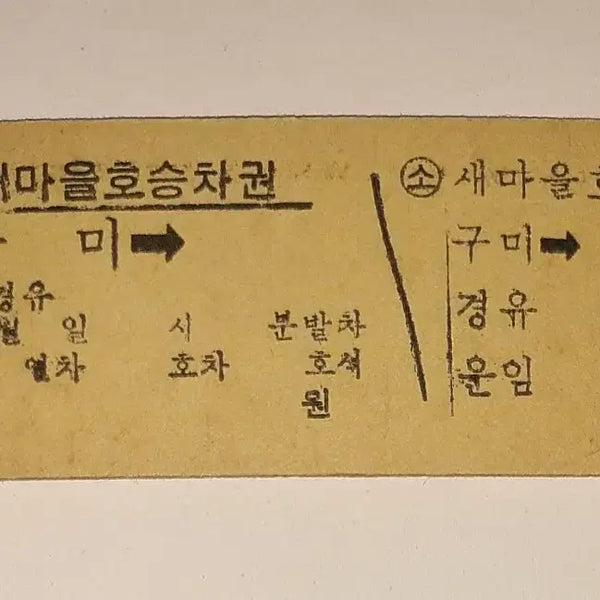 마을호승차권
미➡
경유
월 일 시 분발차
열차 호차 호석
원
㊛ 새마을호
구미➡
경유
운임